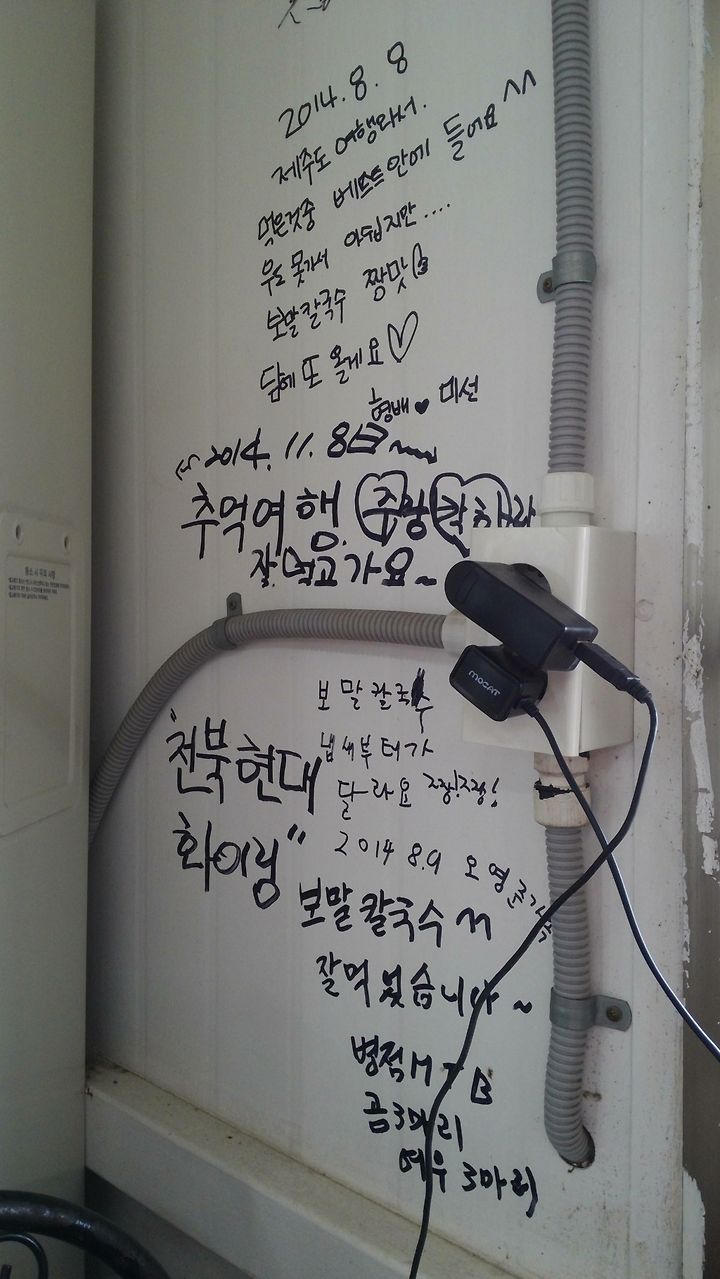 2014.8.8
제주도 여행와서.
먹은것중 베스트안에 들어요 ^^
우도 못가서 아쉽지만....
보말칼국수 짱맛
담에 또 올게요♡
형배♥미선
2014.11.8日~
추억여행.
잘 먹고 가요~
MOCAT
보말칼국수
냄새부터가
달라요 짱!짱!
2014 8.9 오영
"전북현대
화이링"
보말칼국수 m
잘먹었습니다~
병점MTB
곰3마리
여우3마리